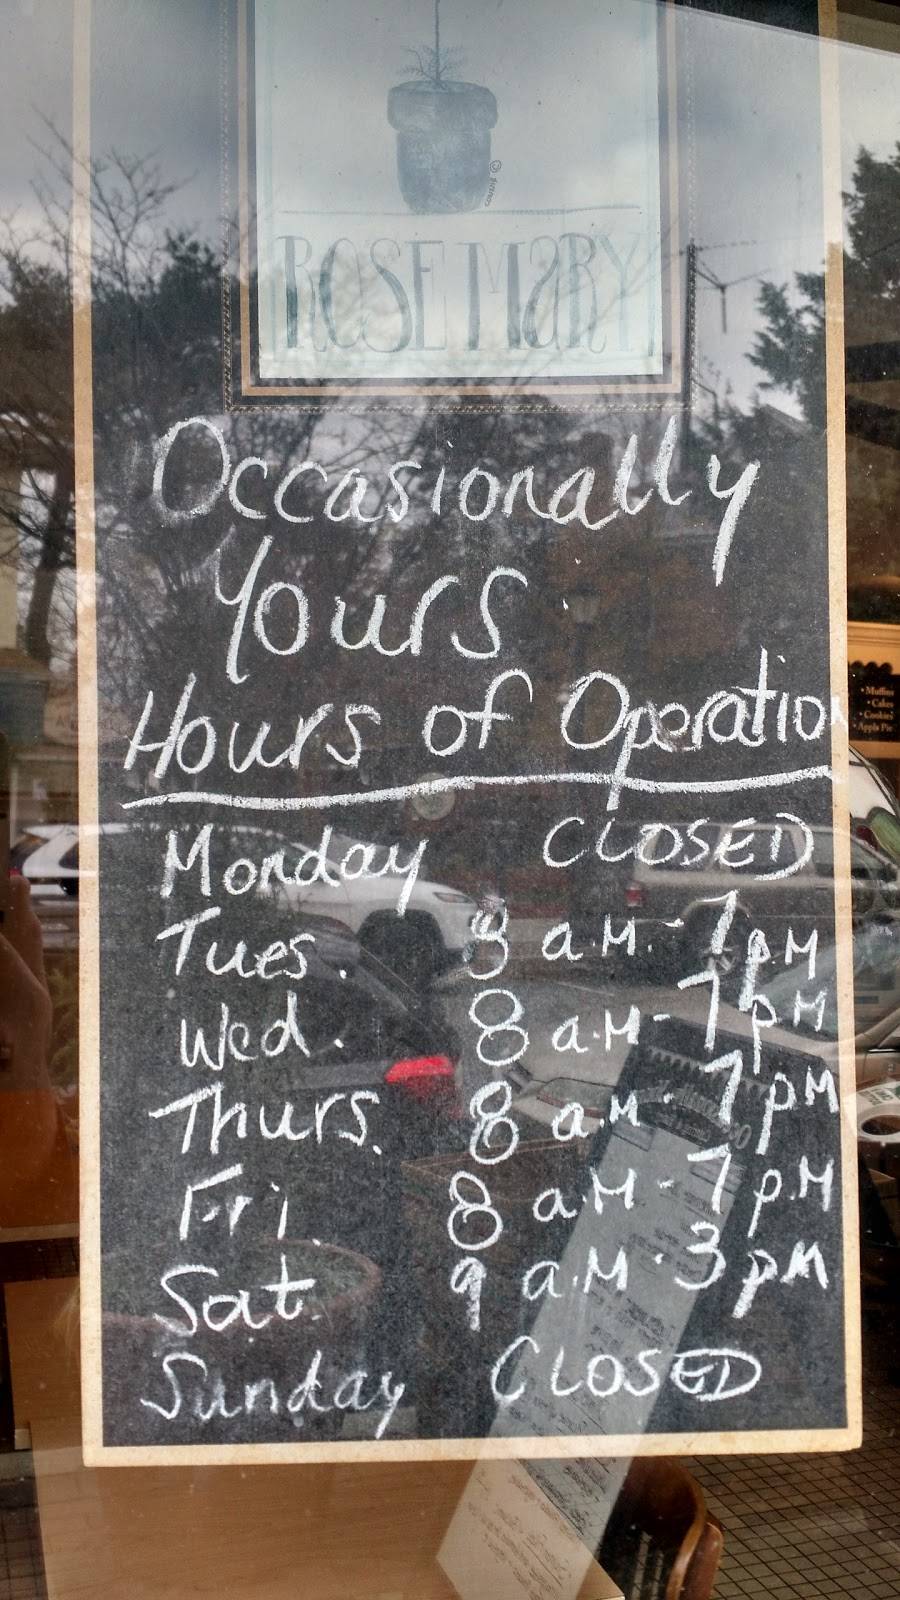 ROSEMARY
Occasionally
Yours
Hours of Operation
Monday CLOSED
Tues. 8 a.M. - 7 pM
Wed. 8 a.M - 7 pM
Thurs. 8 a.M. - 7 pM
Fri. 8 a.M - 7 p.M
Sat. 9 a.M - 3 pM
Sunday CLOSED
• Muffins
• Cakes
• Cookies
• Apple Pie